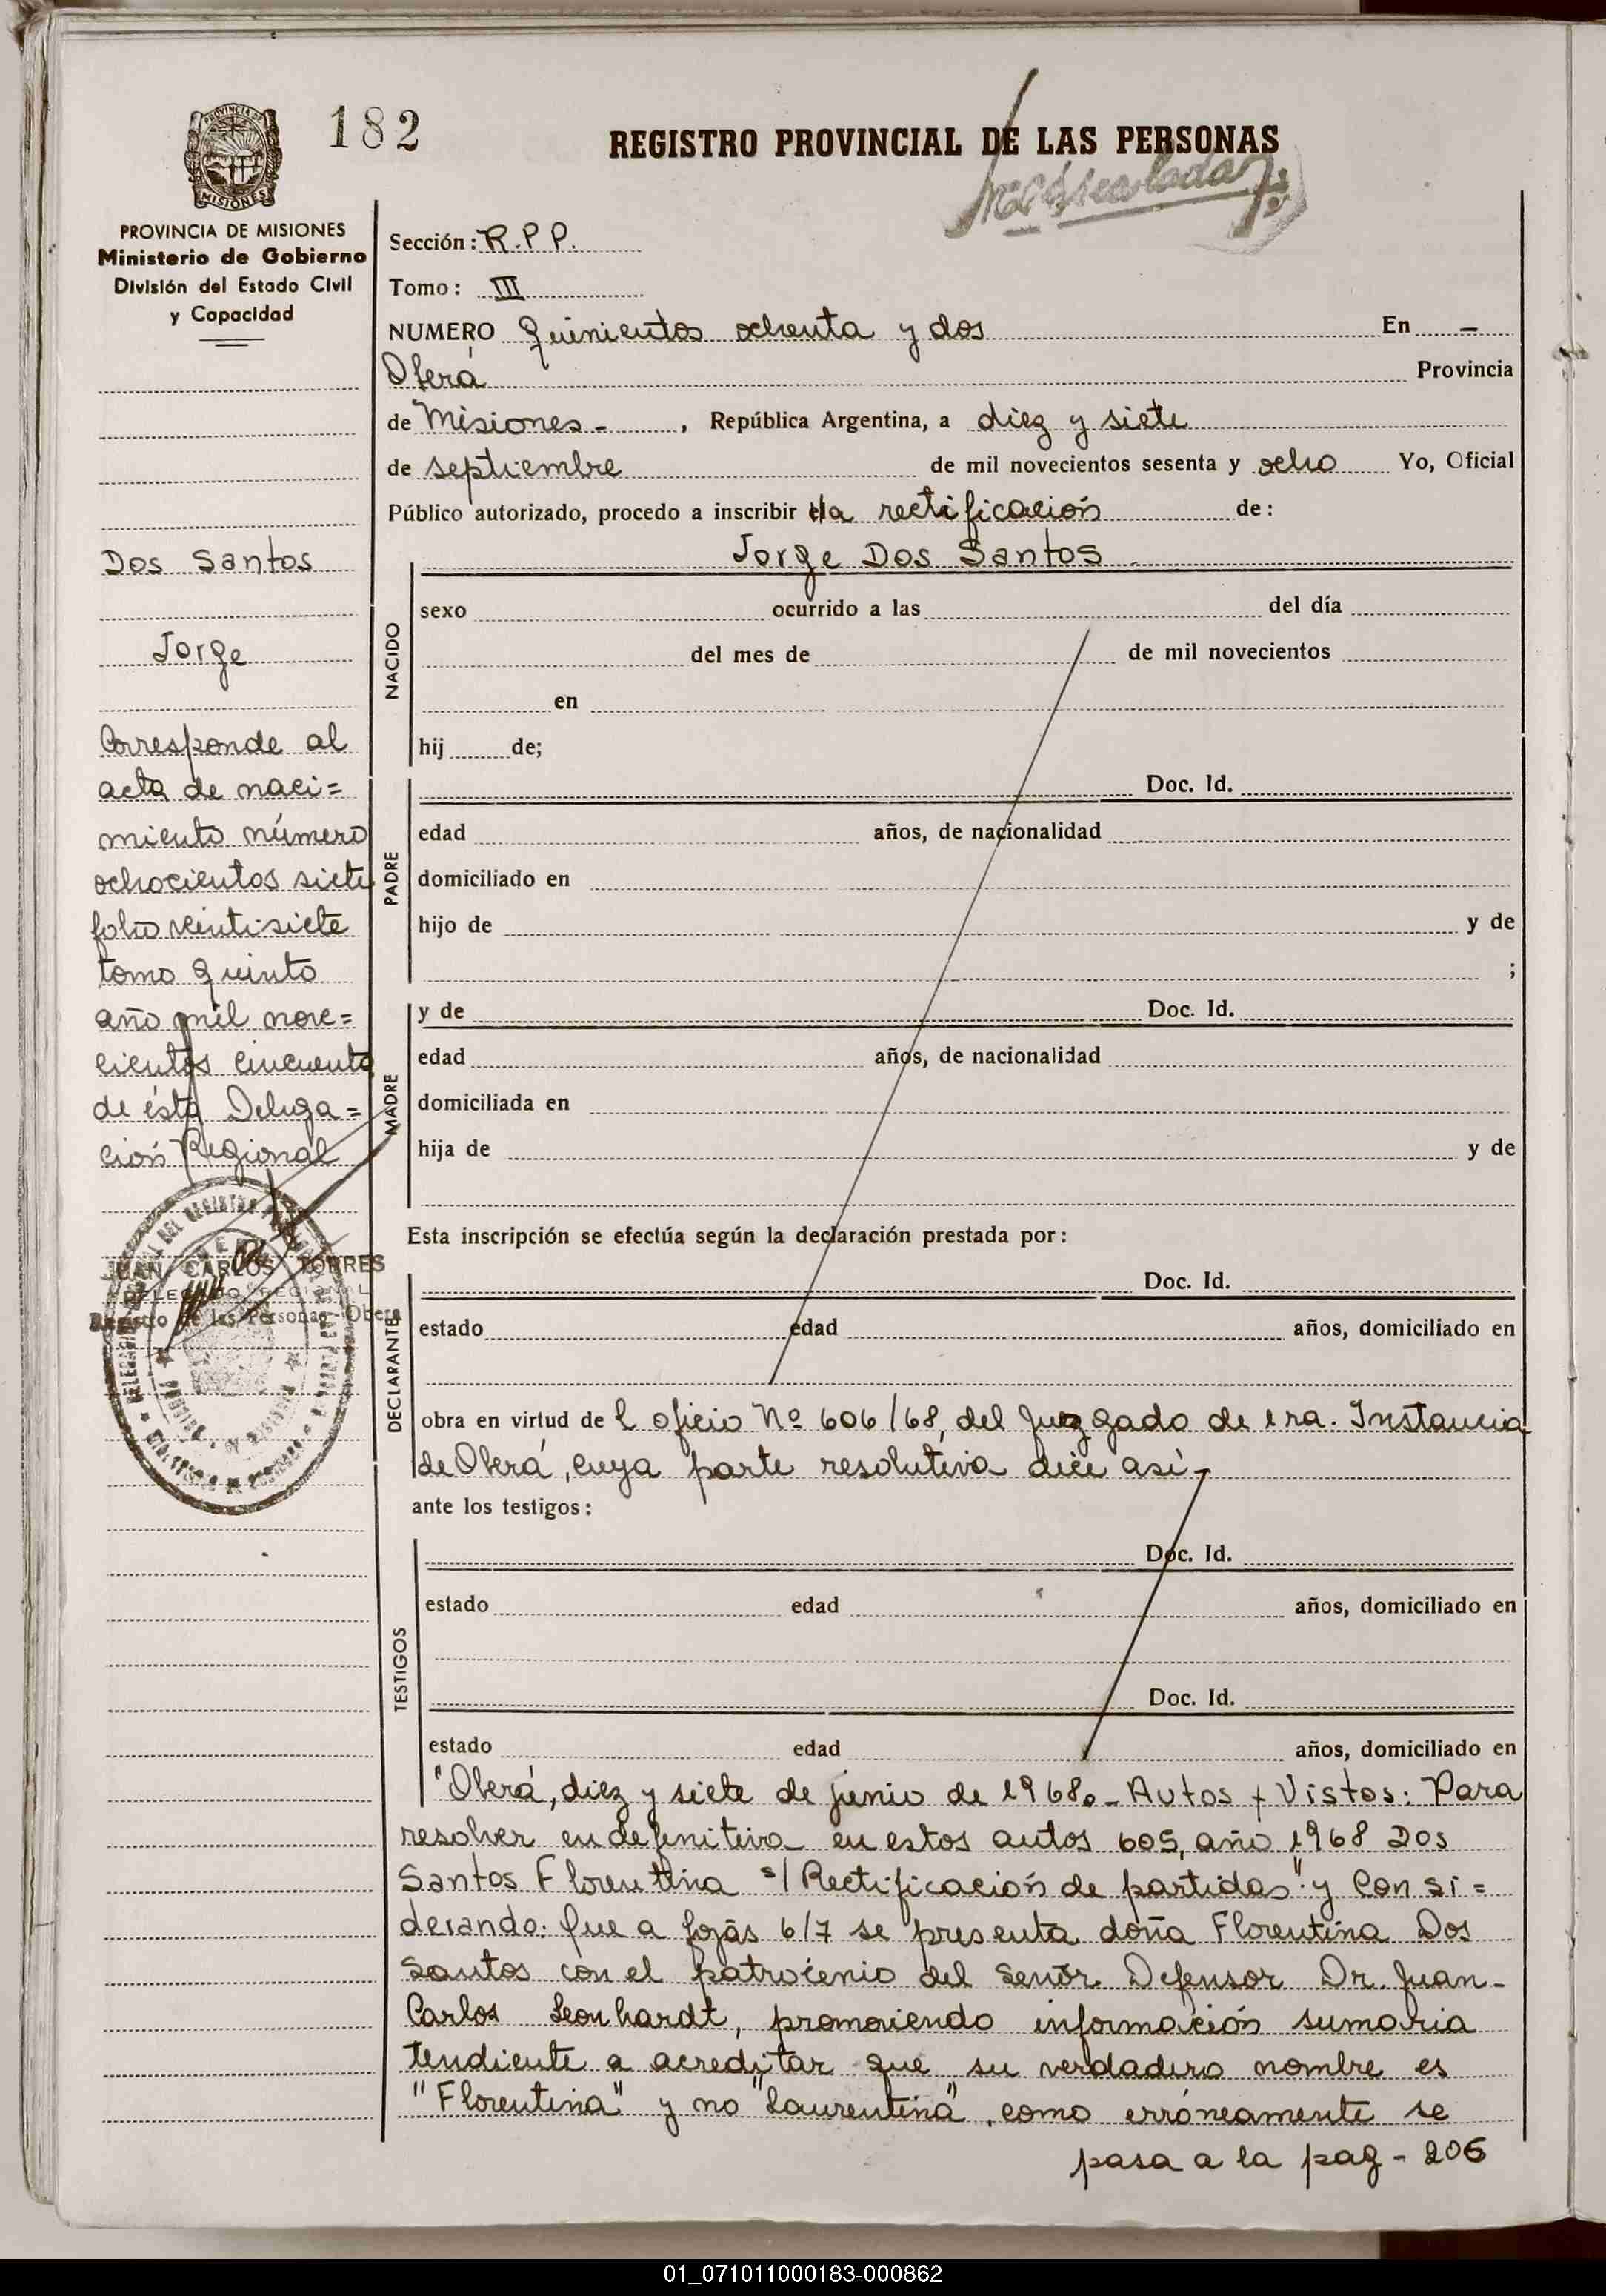 182
REGISTRO PROVINCIAL DE LAS PERSONAS
PROVINCIA DE
MISIONES
PROVINCIA DE MISIONES
Ministerio de Gobierno
División del Estado Civil
y Capacidad
Dos Santos
Jorge
Corresponde al
acta de naci=
miento número
ochocientos siete
folio veintisiete
tomo quinto
año mil nove=
cientos cincuenta
de ésta Delega=
ción Regional
JUAN CARLOS TORRES
DELEGADO REGIONAL
Registro de las Personas - Obera
Sección: R.P.P.
Tomo: III
NUMERO Quinientos ochenta y dos En -
Oberá Provincia
de Misiones - , República Argentina, a diez y siete
de septiembre de mil novecientos sesenta y ocho Yo, Oficial
Público autorizado, procedo a inscribir la rectificación de:
Jorge Dos Santos
NACIDO
sexo ocurrido a las del día
del mes de de mil novecientos
en
hij de;
PADRE
Doc. Id.
edad años, de nacionalidad
domiciliado en
hijo de y de
;
MADRE
y de Doc. Id.
edad años, de nacionalidad
domiciliada en
hija de y de
Esta inscripción se efectúa según la declaración prestada por:
DECLARANTE
Doc. Id.
estado edad años, domiciliado en
obra en virtud del oficio Nº 606/68, del Juzgado de 1ra. Instancia
de Oberá, cuya parte resolutiva dice así-
ante los testigos:
TESTIGOS
Doc. Id.
estado edad años, domiciliado en
Doc. Id.
estado edad años, domiciliado en
"Oberá, diez y siete de junio de 1968.- Autos y Vistos: Para
resolver en definitiva en estos autos 605, año 1968 Dos
Santos Florentina s/ Rectificación de partidas" y Consi=
derando: Que a fojas 6/7 se presenta doña Florentina Dos
Santos con el patrocinio del Señor Defensor Dr. Juan-
Carlos Leonhardt, promoviendo información sumaria
tendiente a acreditar que su verdadero nombre es
"Florentina" y no "Laurentina", como erróneamente se
pasa a la pag - 206
01_071011000183-000862